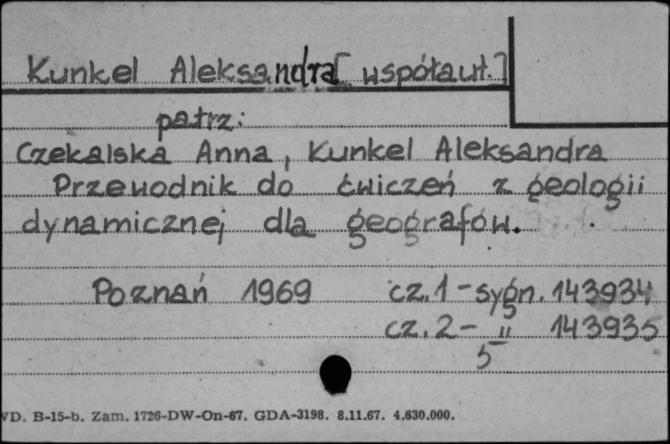 Kunkel Aleksandra [współaut.]
patrz:
Czekalska Anna, Kunkel Aleksandra
Przewodnik do ćwiczeń z geologii
dynamicznej dla geografów.
Poznań 1969 cz. 1 - sygn. 143934
cz. 2 - " 143935
5
VD. B-15-b. Zam. 1726-DW-On-67. GDA-3198. 8.11.67. 4.630.000.